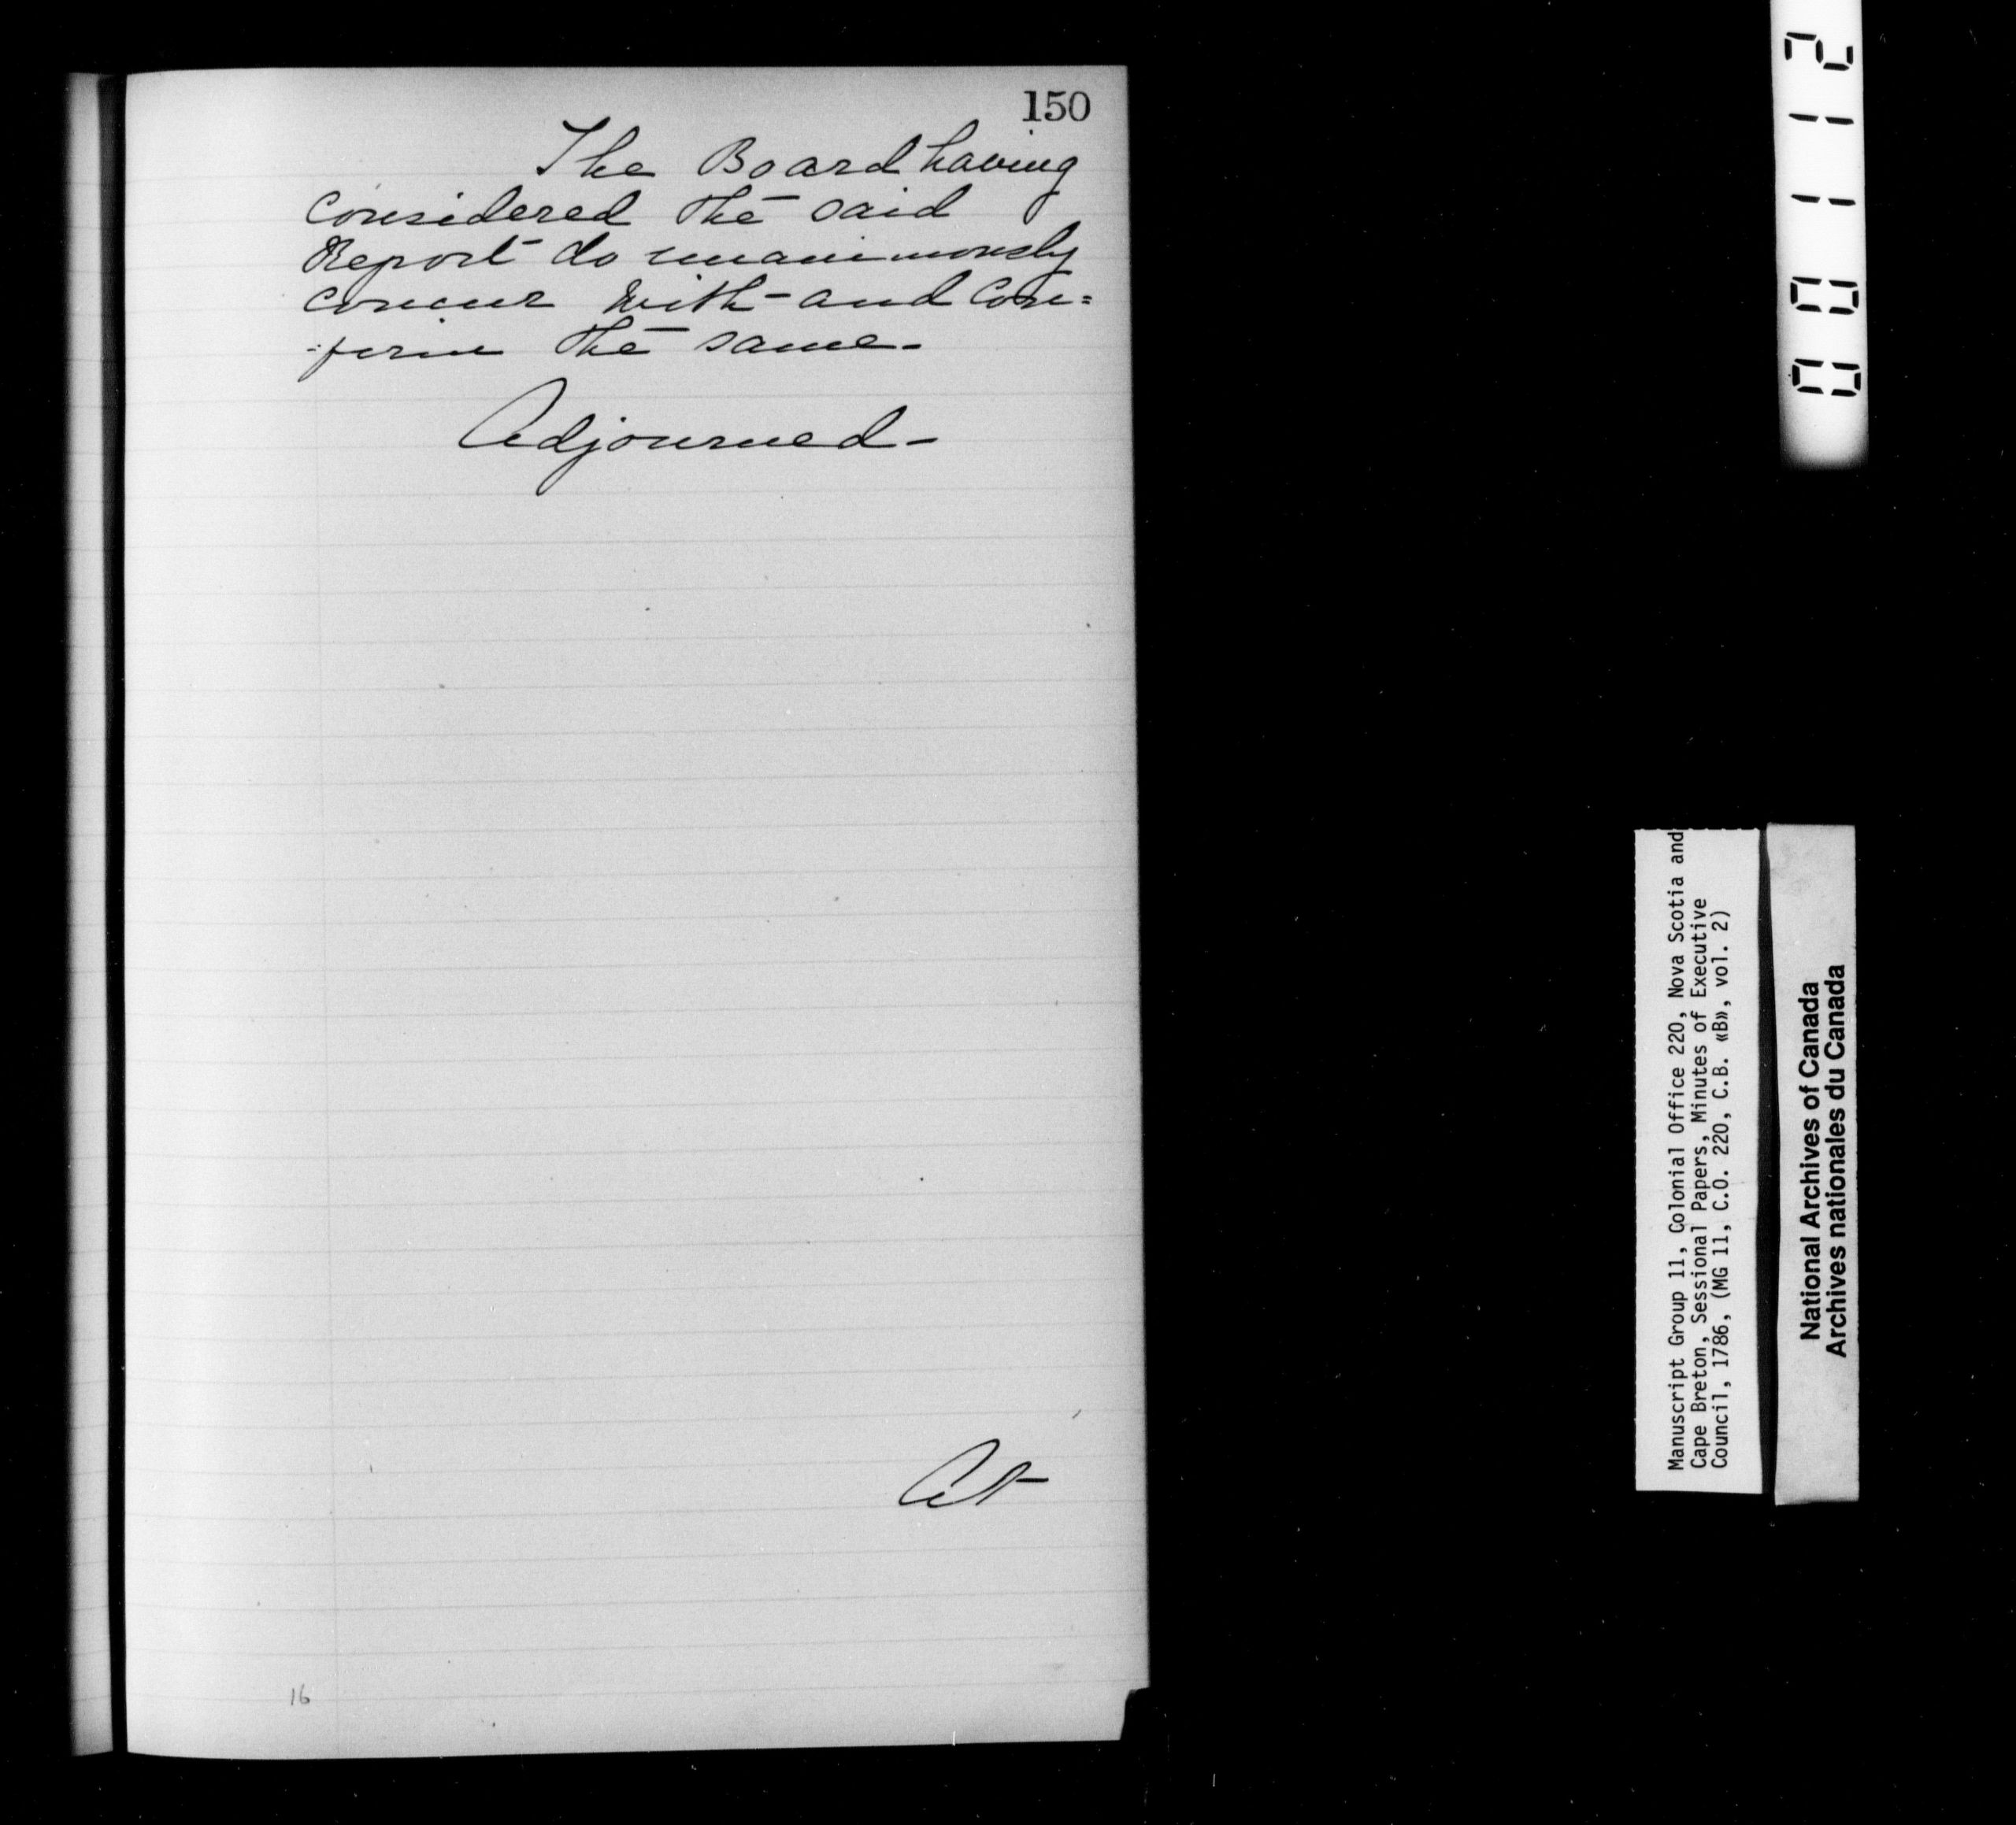 150
The Board having
Considered the said
Report do unanimously
concur with and Con=
-firm the same-
Adjourned-
At
16
00112
Manuscript Group 11, Colonial Office 220, Nova Scotia and
Cape Breton, Sessional Papers, Minutes of Executive
Council, 1786, (MG 11, C.O. 220, C.B. «B», vol. 2)
National Archives of Canada
Archives nationales du Canada